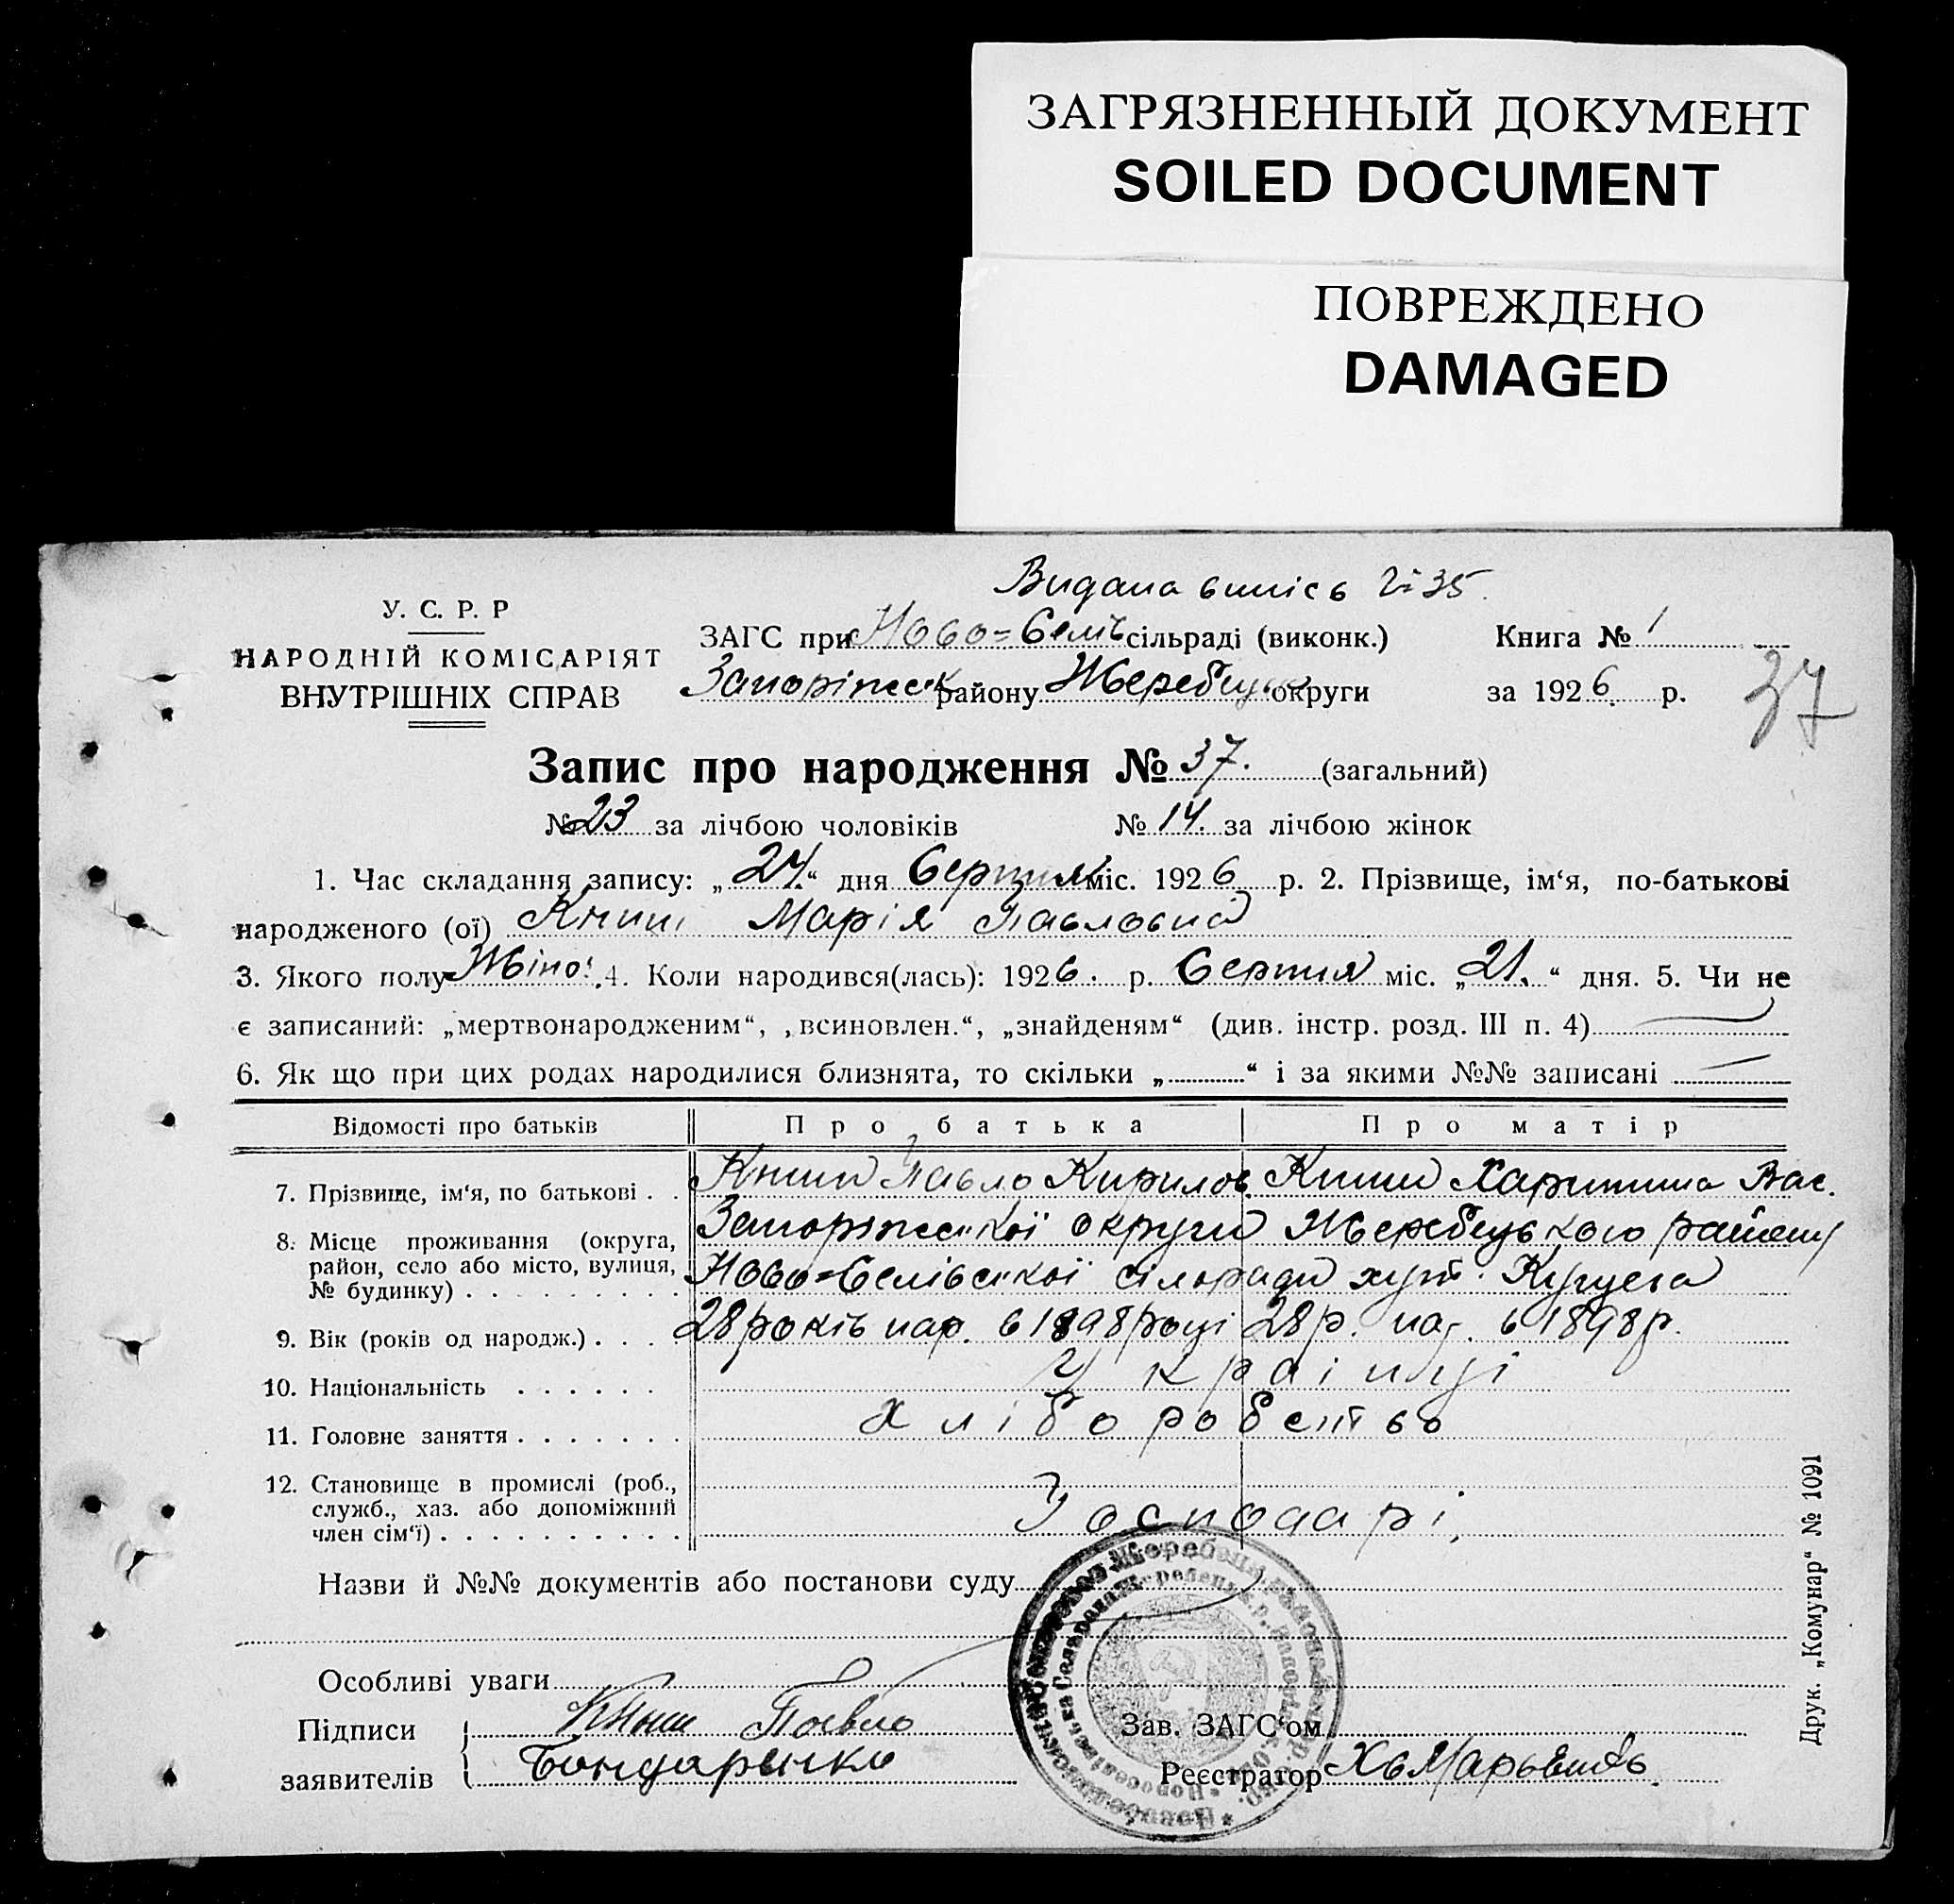 ЗАГРЯЗНЕННЫЙ ДОКУМЕНТ
SOILED DOCUMENT
ПОВРЕЖДЕНО
DAMAGED
Видана випись 35
У. С. Р. Р
НАРОДНІЙ КОМІСАРІЯТ
ВНУТРІШНІХ СПРАВ
ЗАГС при Ново=Селів сільраді (виконк.) Книга № 1
Запоріжск району Жеребецьк округи за 1926 р.
37
Запис про народження № 37. (загальний)
№ 23 за лічбою чоловіків № 14. за лічбою жінок
1. Час складання запису: „24.“ дня Серпня міс. 1926 р. 2. Прізвище, ім‘я, по-батькові
народженого (ої) Книш Марія Павловна
3. Якого полу Жіно. 4. Коли народився(лась): 1926. р. Серпня міс. „21.“ дня. 5. Чи не
є записаний: „мертвонародженим“, „всиновлен.“, „знайденям“ (див. інстр. розд. III п. 4)
6. Як що при цих родах народилися близнята, то скільки „............“ і за якими №№ записані
Відомості про батьків Про батька Про матір
7. Прізвище, ім‘я, по батькові . . Книш Павло Кирилов. Книш Харитина Вас.
8. Місце проживання (округа, район, село або місто, вулиця, № будинку) . . . . . . . . . Запоріжської округи Жеребецького району
Ново=Селівської сілради хут.
9. Вік (років од народж.) . . . . 28 років нар. в 1898 році 28 р. нар. в 1898 р.
10. Національність . . . . . . Українці
11. Головне заняття . . . . . . . хліборобство
12. Становище в промислі (роб., служб., хаз. або допоміжний член сім‘ї) . . . . . . . . . . Господарі,
Назви й №№ документів або постанови суду
Особливі уваги
Підписи Книш Павло
заявителів Бондаренко
Зав. ЗАГС‘ом
Реєстратор
Друк. „Комунар“ № 1091